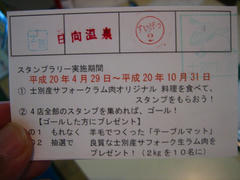 日向温泉
スタンプラリー実施期間
平成20年4月29日～平成20年10月31日
① 士別産サフォークラム肉オリジナル 料理を食べて、
スタンプをもらおう!
② 4店全部のスタンプを集めれば、ゴール!
【ゴールした方にプレゼント】
の1 もれなく 羊毛でつくった「テーブルマット」
の2 抽選で 良質な士別産サフォーク生ラム肉を
プレゼント!(2kgを10名に)